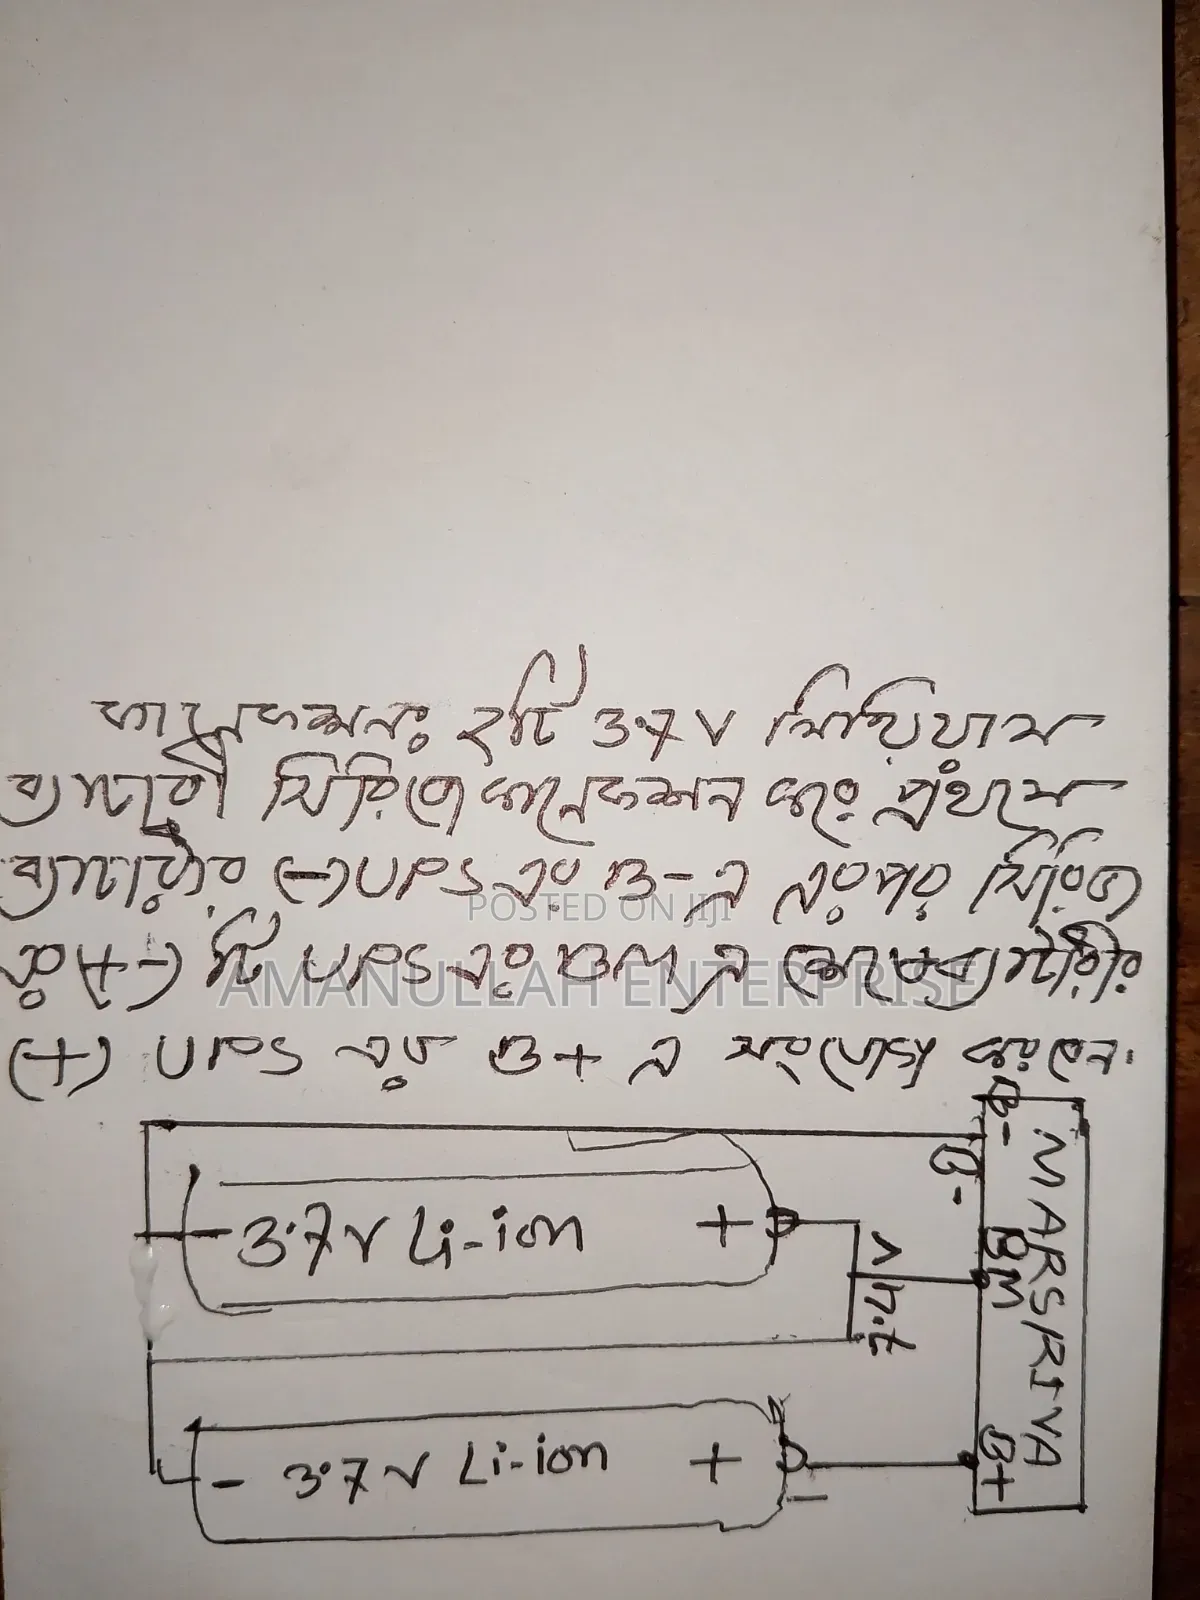 কানেকশনঃ ২টি 3.7V লিথিয়াম
ব্যাটারী সিরিজে কানেকশন করে প্রথমে
ব্যাটারীর (-) UPS এর B- এ এরপর সিরিজ
এর (+-) টি UPS এর BM এ শেষে ব্যাটারীর
(+) UPS এর B+ এ সংযোগ করবেন।
POSTED ON JIJI
AMANULLAH ENTERPRISE
B-
B-
BM
B+
MARS/RIVA
- 3.7V Li-ion +
7.4V
- 3.7V Li-ion +